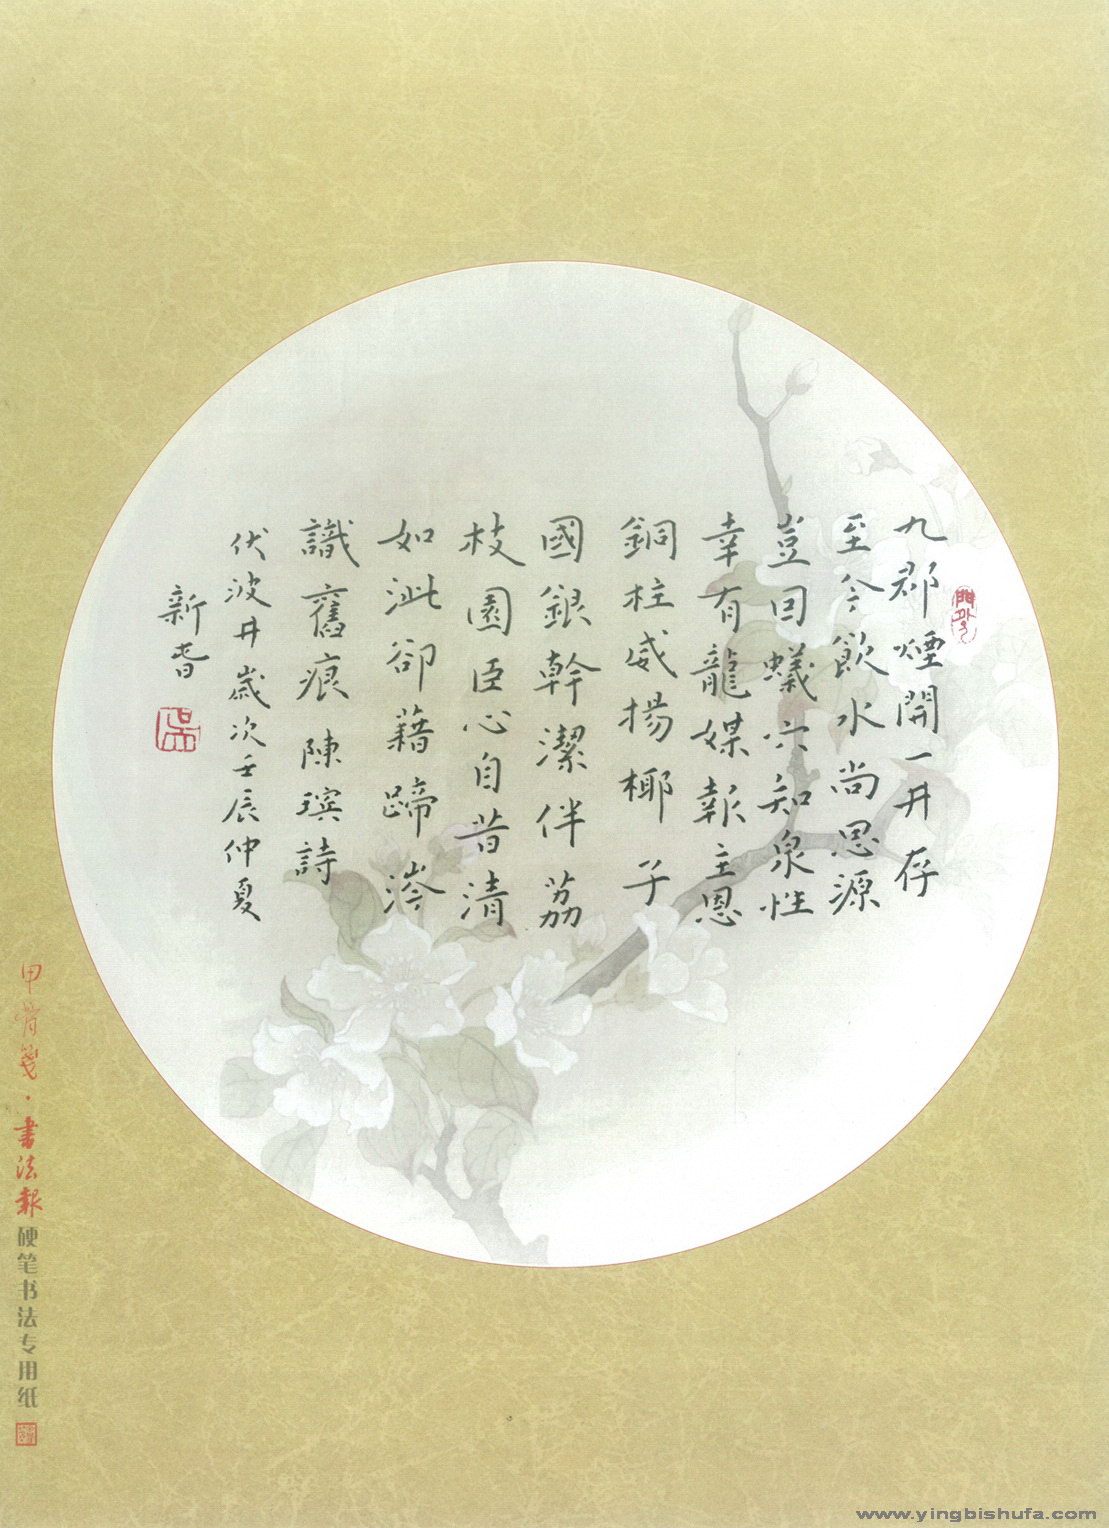 九郡煙開一井存
至今飲水尚思源
豈因蟻穴知泉性
幸有龍媒報主恩
銅柱威揚椰子
國銀幹潔伴荔
枝園臣心自昔清
如泚卻藉蹄涔
識舊痕 陳瑸詩
伏波井歲次壬辰仲夏
新春
甲骨箋·書法報
硬笔书法专用纸
www.yingbishufa.com